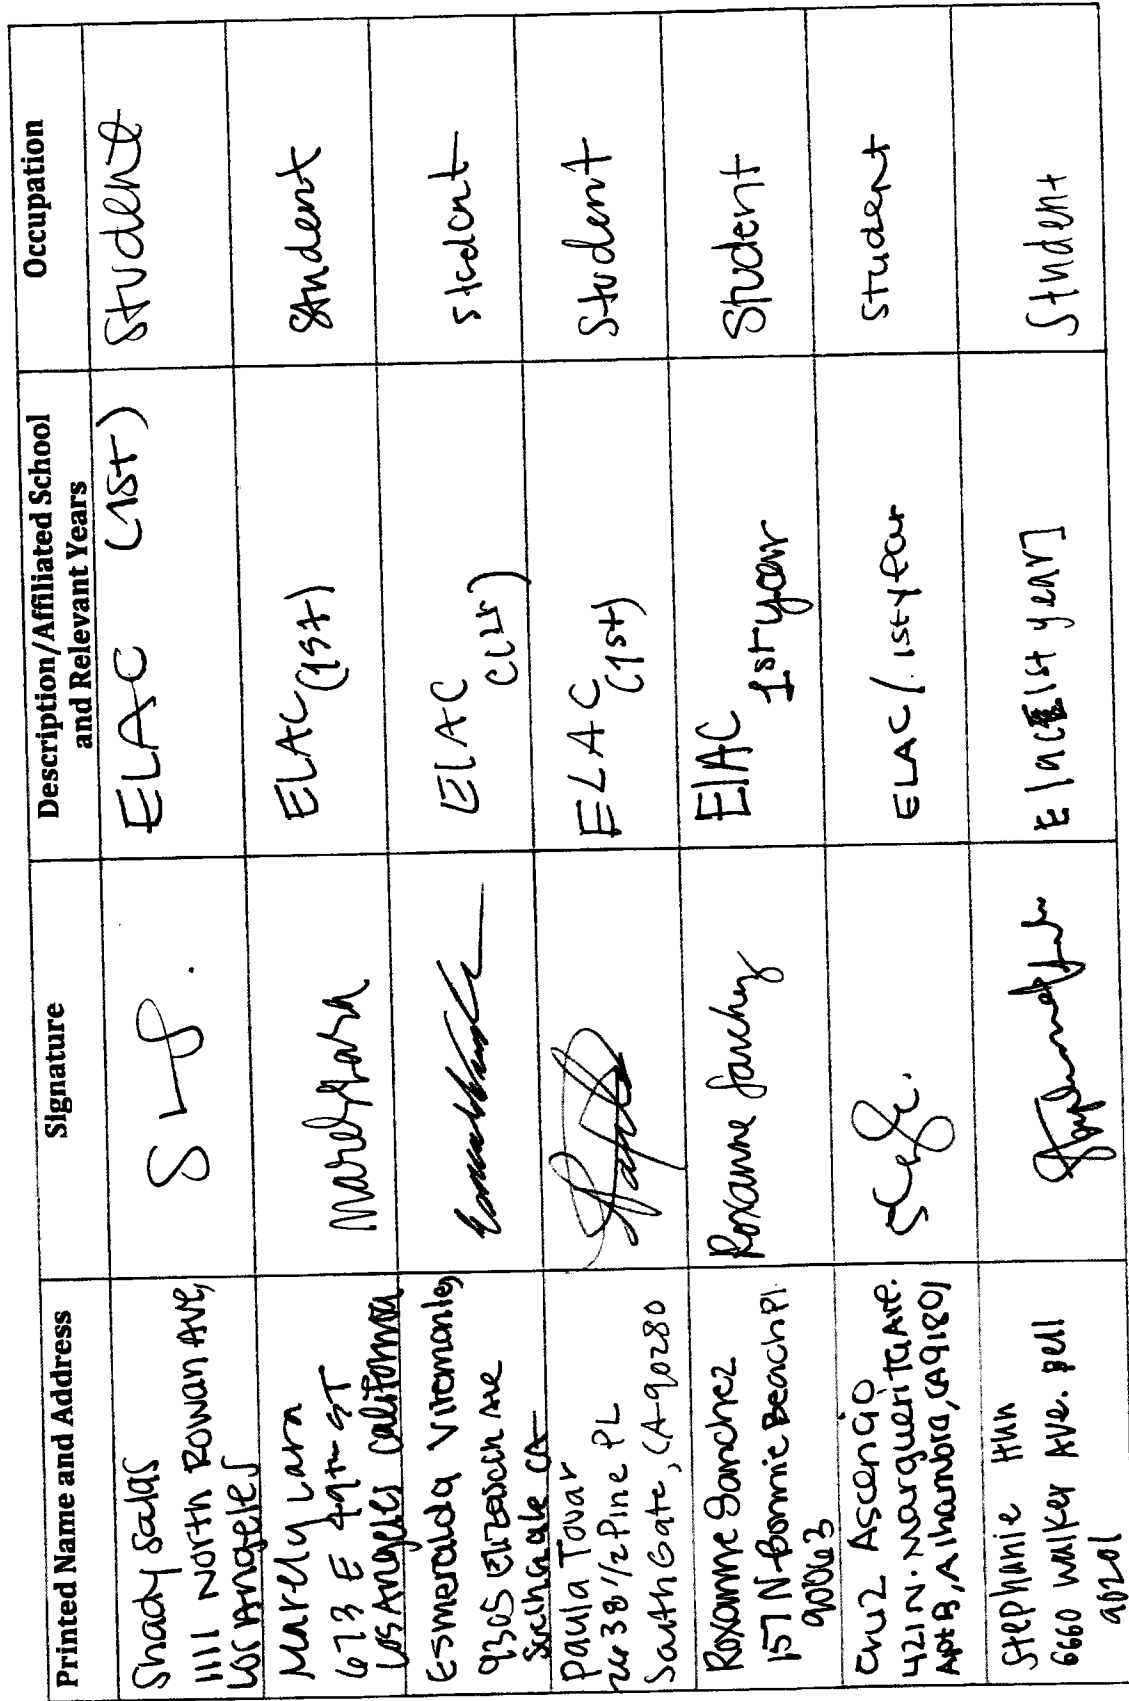 Printed Name and Address
Signature
Description/Affiliated School
and Relevant Years
Occupation
Shady Salas
1111 North Rowan Ave,
Los Angeles
ELAC (1st)
Student
Marely Lara
673 E 49th ST
Los Angeles California
Marely Lara
ELAC (1st)
Student
Esmeralda
9305 Elizabeth Ave
ELAC
student
Paula Tovar
2638 1/2 Pine PL
South Gate, CA 90280
ELAC
(1st)
Student
Roxanne Sanchez
157 N Bonnie Beach Pl.
90063
Roxanne Sanchez
ElAC
1st year
Student
Cruz Ascencio
421 N. Marguerita Ave.
Apt B, Alhambra, CA 91801
ELAC/.1st year
Student
Stephanie
6660 Walker Ave. Bell
90201
Elac 1st year]
Student